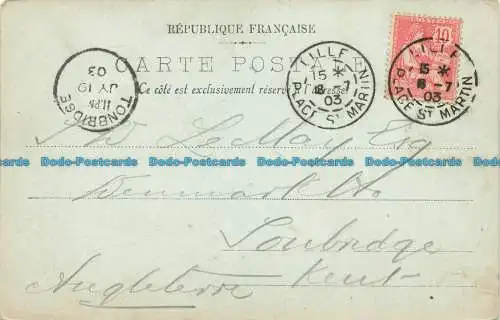 RÉPUBLIQUE FRANÇAISE
CARTE POSTALE
Ce côté est exclusivement réservé à l'adresse
LILLE
15 *
8 - 7
03
PLACE ST MARTIN
10
LILLE
15 *
8 - 7
03
PLACE ST MARTIN
TONBRIDGE
JY 10
03
Dodo-Postcards Dodo-Postcards Dodo-Postcards Dodo-Postcards Dodo-Postcards
Le May Esq
Denmark Ho
Tonbridge
Kent
Angleterre